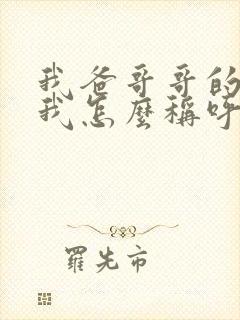 我爸哥哥的
我怎麼稱呼
羅先市